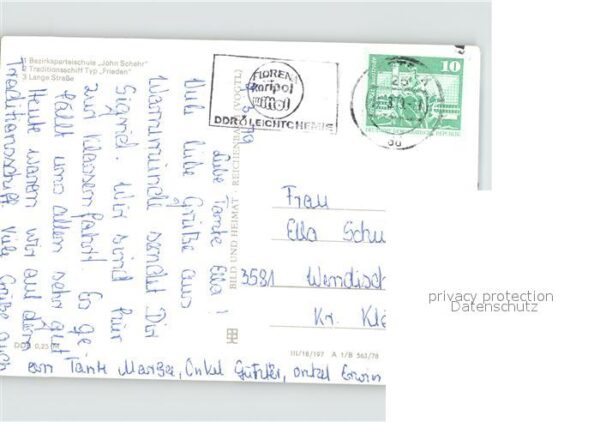 1 Bezirksparteischule „John Schehr“
2 Traditionsschiff Typ „Frieden“
3 Lange Straße
FLORENA
DDR LEICHTCHEMIE
10
DDR
79
Liebe Tante Ella!
Viele liebe Grüße aus
Warnemünde sendet Dir
Sigrid. Wir sind hier
zur Klassenfahrt. Es ge-
fällt uns allen sehr gut.
Heute waren wir auf dem
Traditionsschiff. Viele Grüße auch
an Tante Marga, Onkel Günter, Onkel Erwin
BILD UND HEIMAT REICHENBACH (VOGTL)
Frau
Ella Schu
3581 Wendisch
Kr. Klö
DDR 0,25 M
III/18/197 A 1/B 563/78
privacy protection
Datenschutz